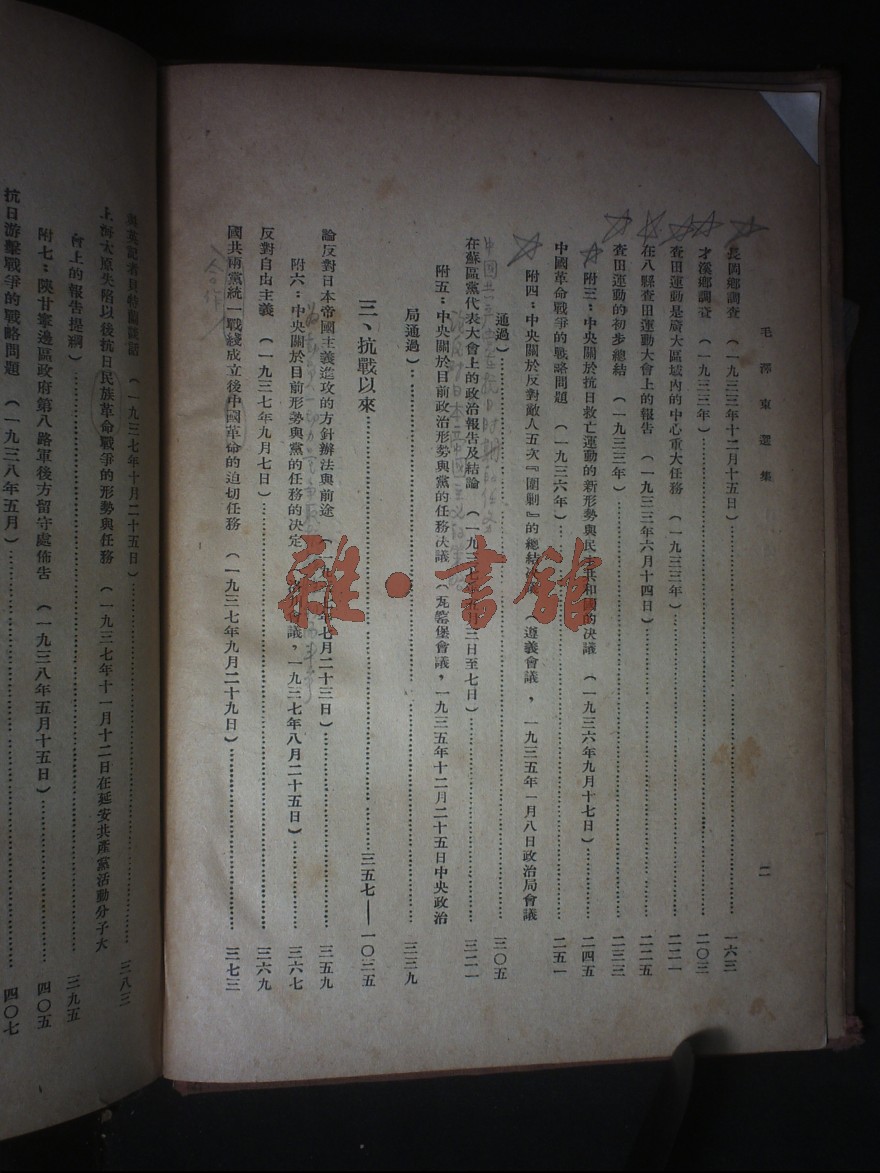 毛澤東選集
二
長岡鄉調查（一九三三年十二月十五日）……一六三
才溪鄉調查（一九三三年）……二〇三
查田運動是廣大區域內的中心重大任務（一九三三年）……二二一
在八縣查田運動大會上的報告（一九三三年六月十四日）……二二五
查田運動的初步總結（一九三三年）……二三三
附三：中央關於抗日救亡運動的新形勢與民主共和國的決議（一九三六年九月十七日）……二四五
中國革命戰爭的戰略問題（一九三六年）……二五一
附四：中央關於反對敵人五次『圍剿』的總結決議（遵義會議，一九三五年一月八日政治局會議
通過）……三〇五
在蘇區黨代表大會上的政治報告及結論（一九三七年五月三日至七日）……三二一
附五：中央關於目前政治形勢與黨的任務決議（瓦窰堡會議，一九三五年十二月二十五日中央政治
局通過）……三三九
三、抗戰以來……三五七——一〇三五
論反對日本帝國主義進攻的方針辦法與前途（一九三七年七月二十三日）……三五九
附六：中央關於目前形勢與黨的任務的決定（洛川會議，一九三七年八月二十五日）……三六七
反對自由主義（一九三七年九月七日）……三六九
國共兩黨統一戰綫成立後中國革命的迫切任務（一九三七年九月二十九日）……三七三
合作
與英記者貝特蘭談話（一九三七年十月二十五日）……三八三
上海太原失陷以後抗日民族革命戰爭的形勢與任務（一九三七年十一月十二日在延安共產黨活動分子大
會上的報告提綱）……三九五
附七：陝甘寧邊區政府第八路軍後方留守處佈告（一九三八年五月十五日）……四〇五
抗日游擊戰爭的戰略問題（一九三八年五月）……四〇七
雜·書館